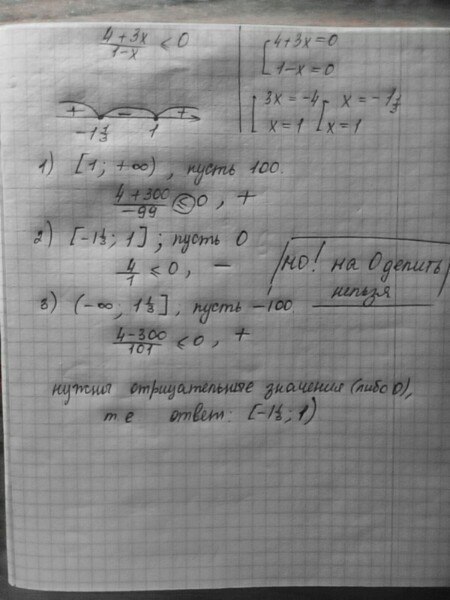 (4+3x)/(1-x) ≤ 0
[4+3x=0
1-x=0
[3x=-4
x=1
[x=-1⅓
x=1
+ - +
-1⅓ 1
1) [1; +∞), пусть 100.
(4+300)/(-99) ≤ 0, +
2) [-1⅓; 1]; пусть 0
4/1 ≤ 0, -
/но! на 0 делить/
нельзя
3) (-∞; 1⅓], пусть -100.
(4-300)/101 ≤ 0, +
нужны отрицательные значения (либо 0),
те ответ: [-1⅓; 1)